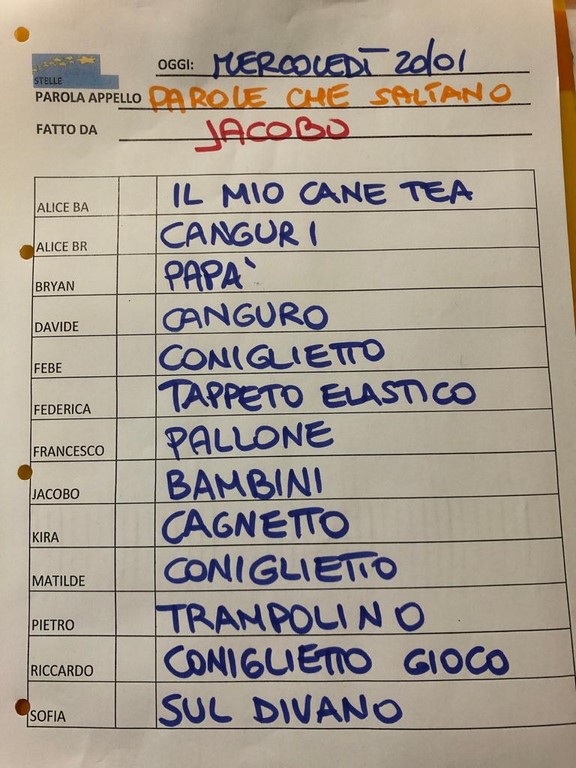 STELLE
OGGI: MERCOLEDÌ 20/01
PAROLA APPELLO PAROLE CHE SALTANO
FATTO DA JACOBO
ALICE BA IL MIO CANE TEA
ALICE BR CANGURI
BRYAN PAPA'
DAVIDE CANGURO
FEBE CONIGLIETTO
FEDERICA TAPPETO ELASTICO
FRANCESCO PALLONE
JACOBO BAMBINI
KIRA CAGNETTO
MATILDE CONIGLIETTO
PIETRO TRAMPOLINO
RICCARDO CONIGLIETTO GIOCO
SOFIA SUL DIVANO